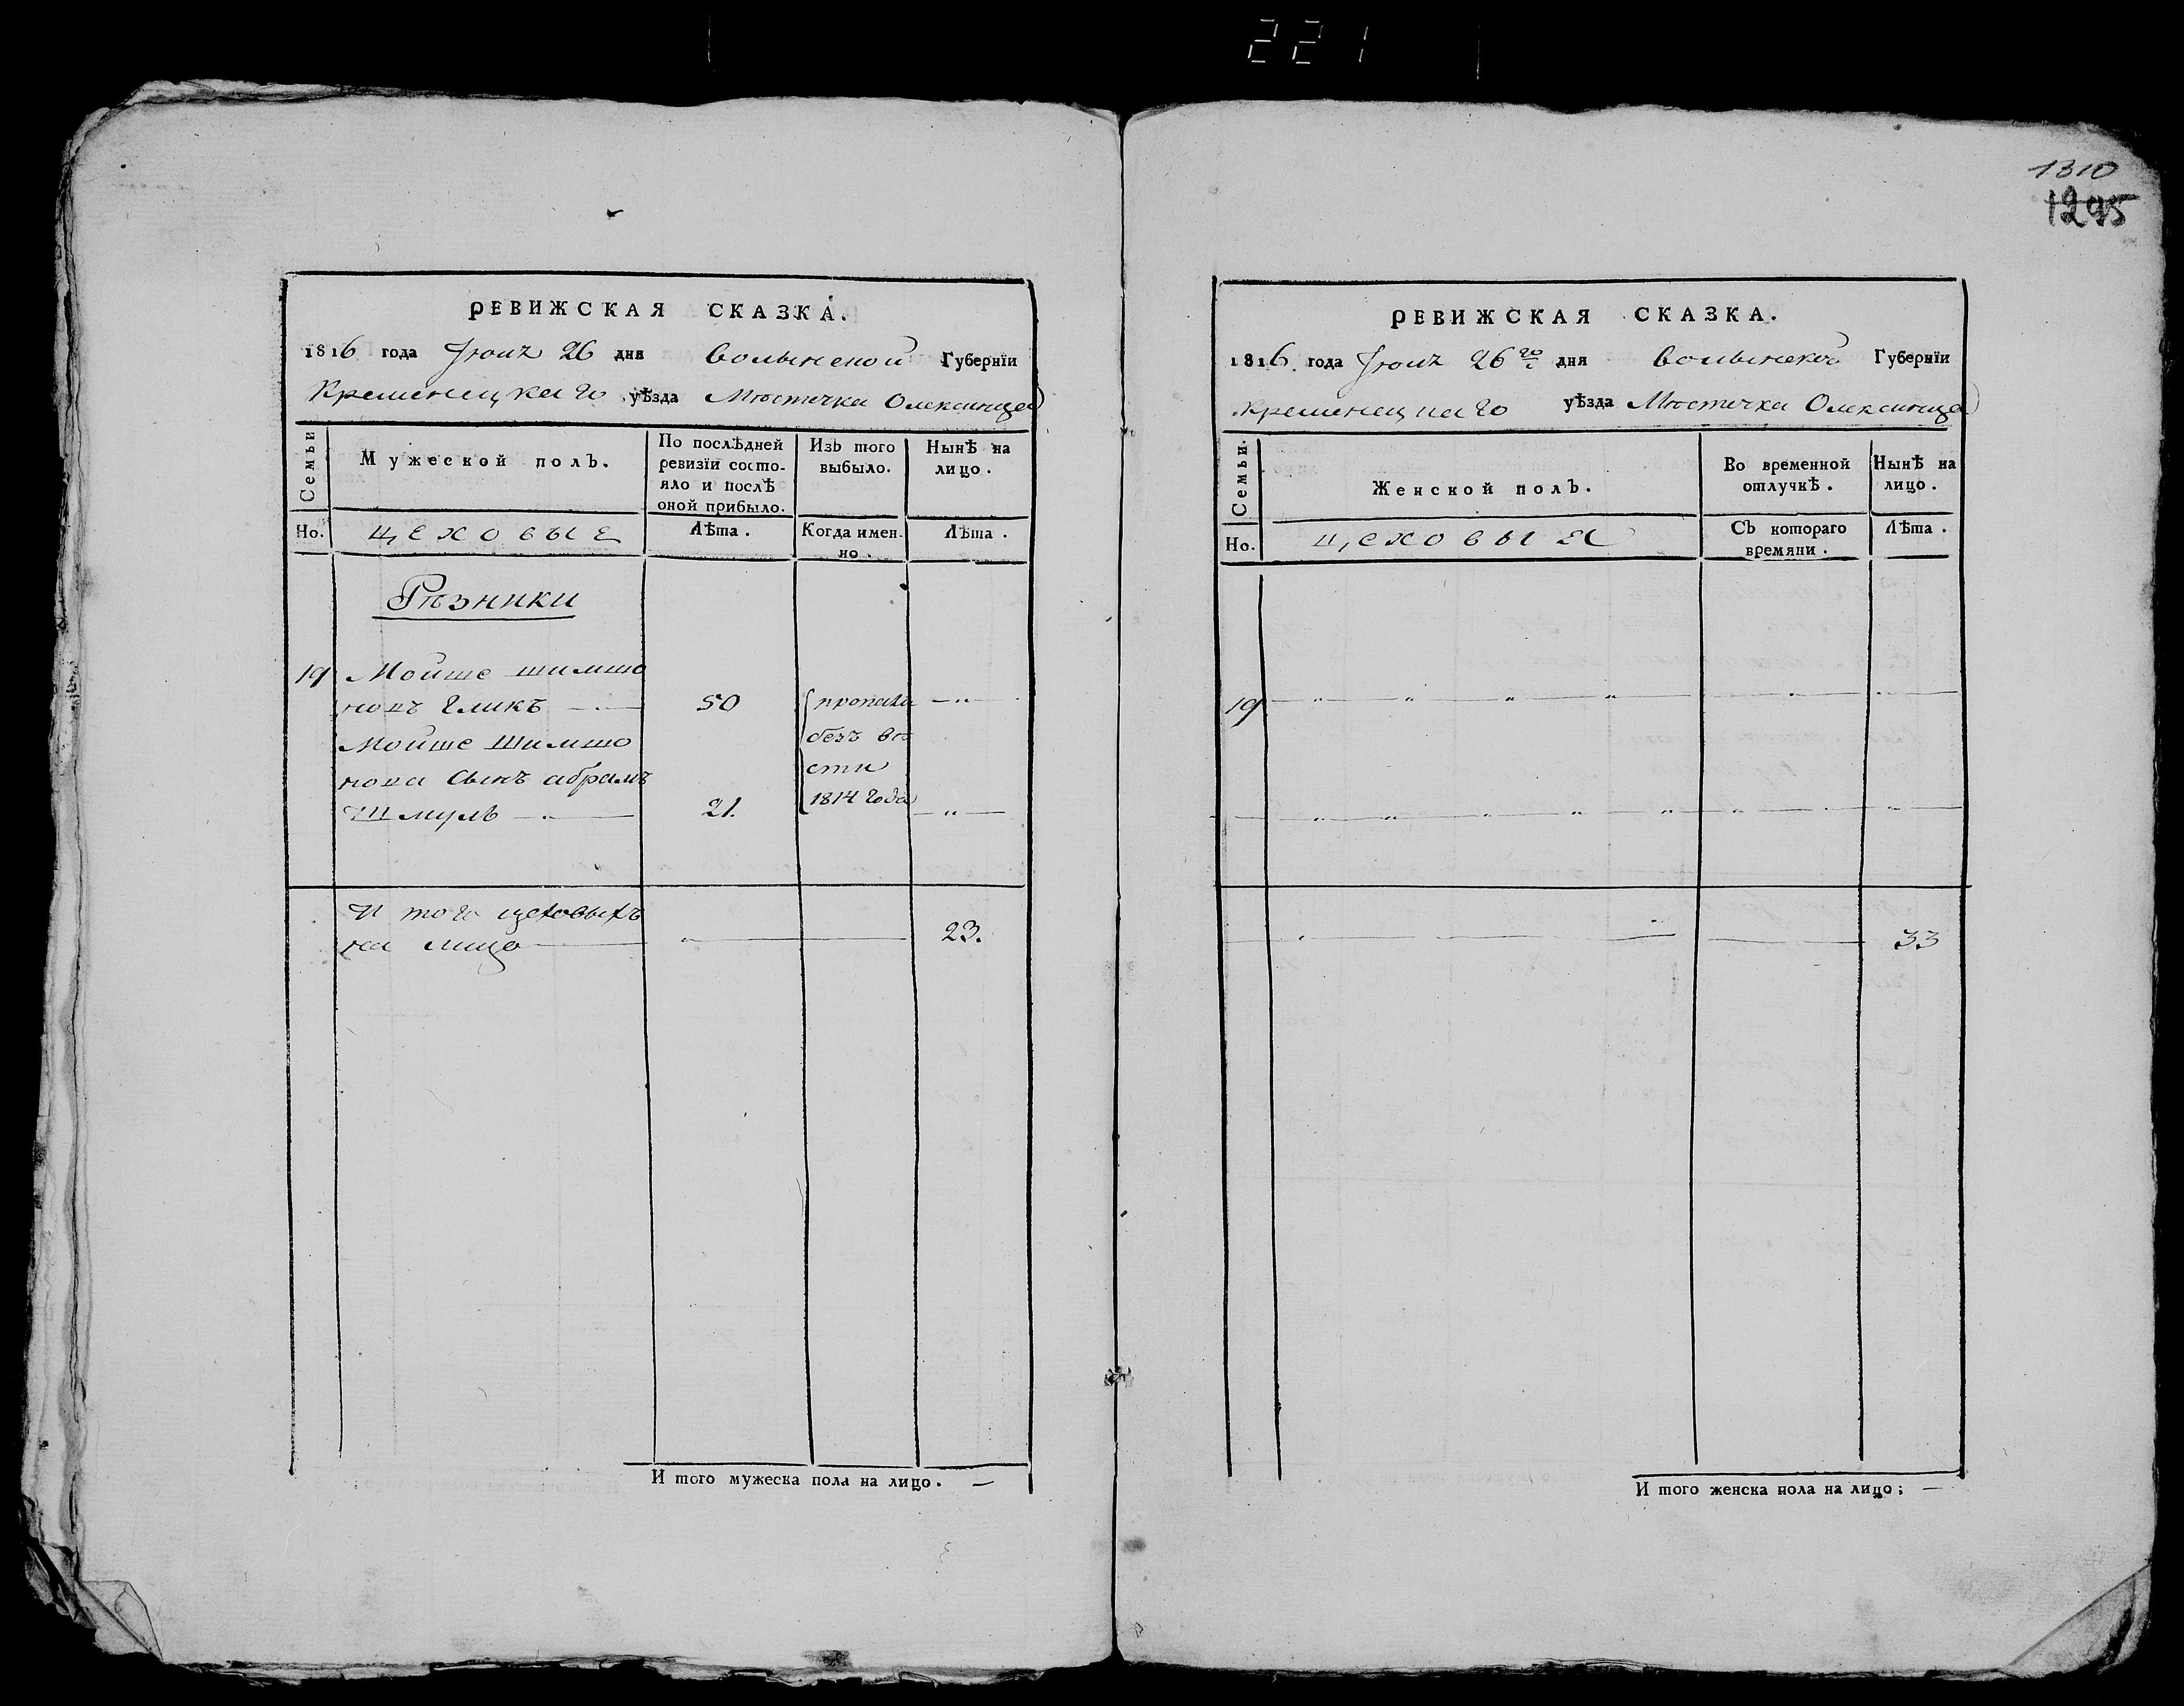 221
1310
1295
РЕВИЖСКАЯ СКАЗКА.
1816 года Іюня 26 дня Волынской Губернїи
Кременецкаго уѣзда Мѣстечка Олексинца
Семьи
Мужеской полъ.
По послѣдней ревизїи состо-
яло и послѣ
оной прибыло.
Изъ того
выбыло.
Нынѣ на
лицо.
Но.
цеховые
Лѣта.
Когда имен-
но.
Лѣта.
Рѣзники
19 Мойше шимшо
новъ Гликъ 50 пропали — " —
Мойше Шимшо без вѣ
нова Сынъ абрамъ сти
Шмуль 21. 1814 Года — " —
И того цеховыхъ
на лицо 23.
И того мужеска пола на лицо. —
РЕВИЖСКАЯ СКАЗКА.
1816. года Іюня 26го дня Волынской Губернїи
Кременецкаго уѣзда Мѣстечка Олексинца
Семьи.
Женской полъ.
Во временной
отлучкѣ.
Нынѣ на
лицо.
Но.
цеховыя
Съ котораго
времяни.
Лѣта.
19 — " — " — " — " — " — " —
— " — " — " — " — " — " — " —
33
И того женска пола на лицо; —